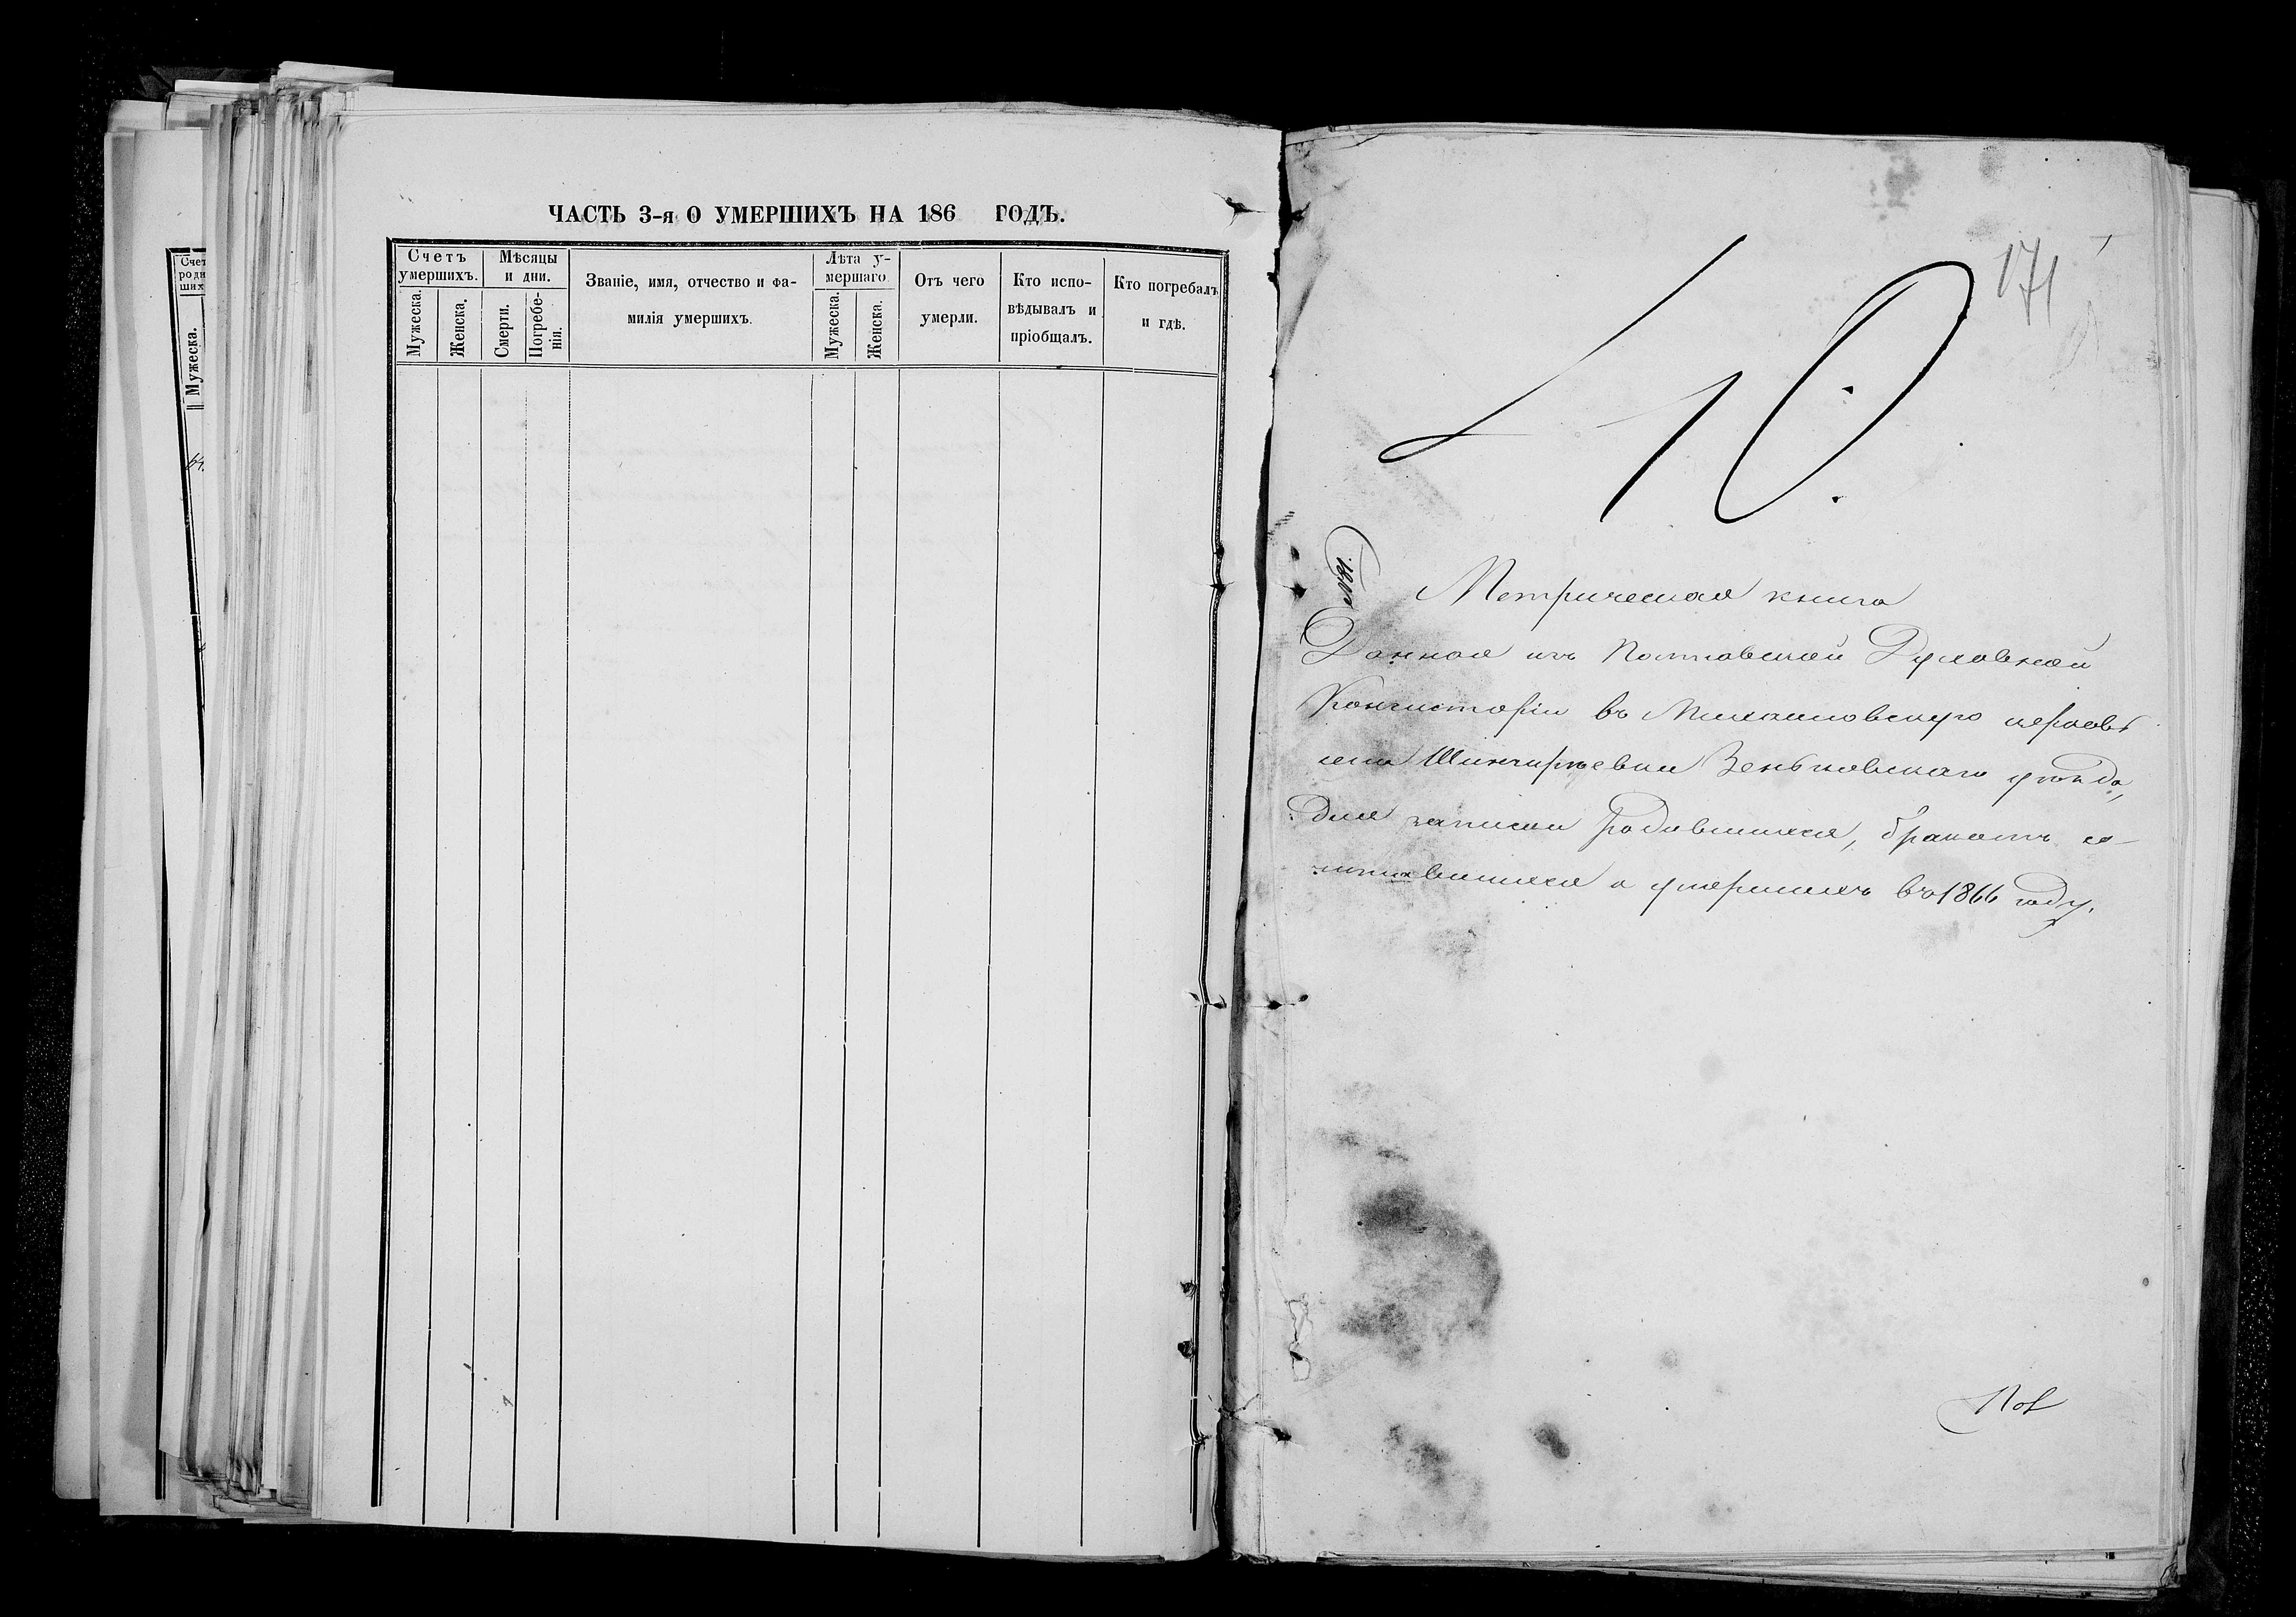 Счет
роди
ших
Мужеска.
ЧАСТЬ 3-я О УМЕРШИХЪ НА 186 ГОДЪ.
Счетъ умершихъ.
Мужеска.
Женска.
Мѣсяцы и дни.
Смерти.
Погребе-
нія.
Званіе, имя, отчество и фа-
милія умершихъ.
Лѣта у-
мершаго
Мужеска.
Женска.
Отъ чего
умерли.
Кто испо-
вѣдывалъ и
пріобщалъ.
Кто погребалъ
и гдѣ.
171
10.
Метрическая книга
Данная изъ Полтавской Духовной
Консисторіи въ Михайловскую церковь
села Шинчиревки Зеньковскаго уѣзда,
для записки родившихся, бракомъ со-
четавшихся и умершихъ въ 1866 году.